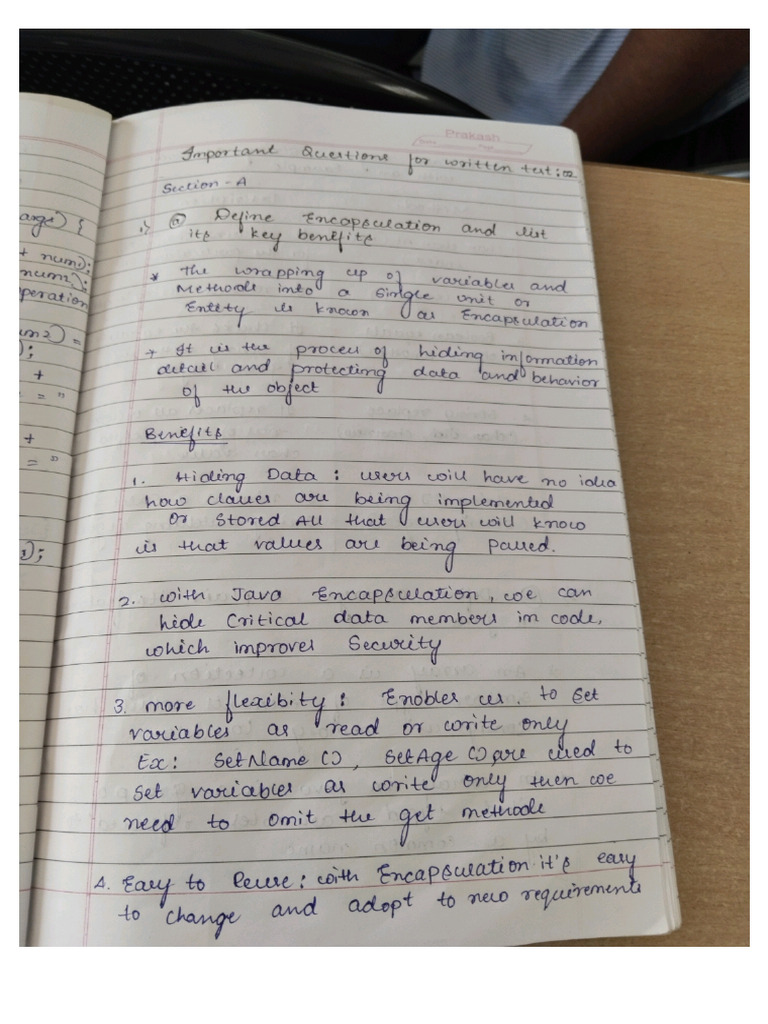 Prakash
Important Questions for written test:02
Section - A
1) a Define Encapsulation and list
its key benefits
* The wrapping up of variables and
Methods into a single unit or
Entity is known as Encapsulation
→ It is the process of hiding information
detail and protecting data and behavior
of the object
Benefits
1. Hiding Data : users will have no idea
how classes are being implemented
or stored All that users will know
is that values are being passed.
2. with Java Encapsulation, we can
hide Critical data members in code,
which improves Security
3. more flexibity : Enables us. to set
variables as read or write only
Ex: SetName (), SetAge () are used to
set variables as write only then we
need to omit the get methods
4. Easy to Reuse : with Encapsulation it's easy
to change and adopt to new requirements
args) {
+ num1);
num2);
operation
num2) =
);
+
= "
+
= "
);